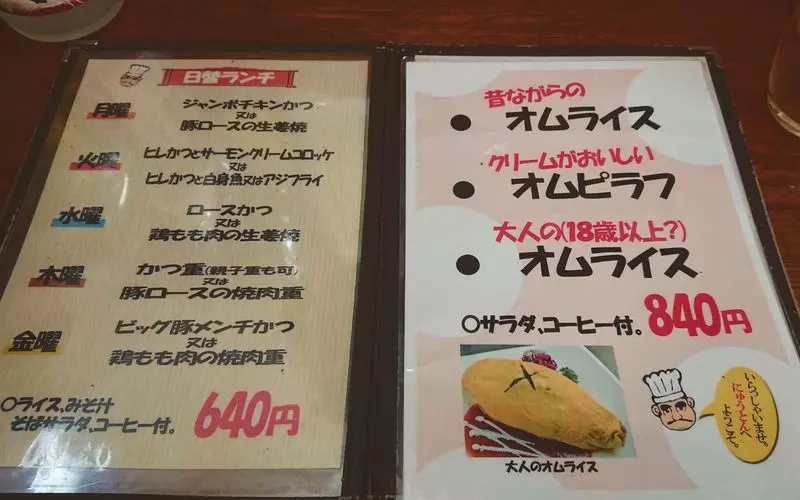 日替ランチ
月曜
ジャンボチキンかつ
又は
豚ロースの生姜焼
火曜
ヒレかつとサーモンクリームコロッケ
又は
ヒレかつと白身魚又はアジフライ
水曜
ロースかつ
又は
鶏もも肉の生姜焼
木曜
かつ重(親子重も可)
又は
豚ロースの焼肉重
金曜
ビッグ豚メンチかつ
又は
鶏もも肉の焼肉重
○ライス、みそ汁
そばサラダ、コーヒー付。
640円
昔ながらの
● オムライス
クリームがおいしい
● オムピラフ
大人の(18歳以上?)
● オムライス
○サラダ、コーヒー付。840円
大人のオムライス
いらっしゃいませ。
にゅうとんへ
ようこそ。